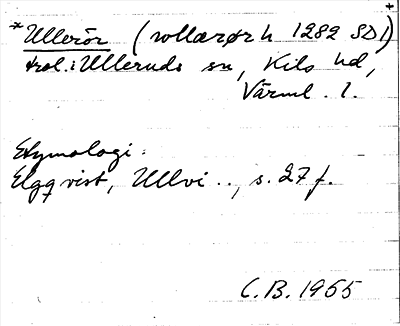 *Ullerör (wllærørh 1282 SD 1)
trol.: Ulleruds sn, Kils hd,
Värml. l.
Etymologi:
Elgqvist, Ullvi.., s. 27 f.
C.B. 1965